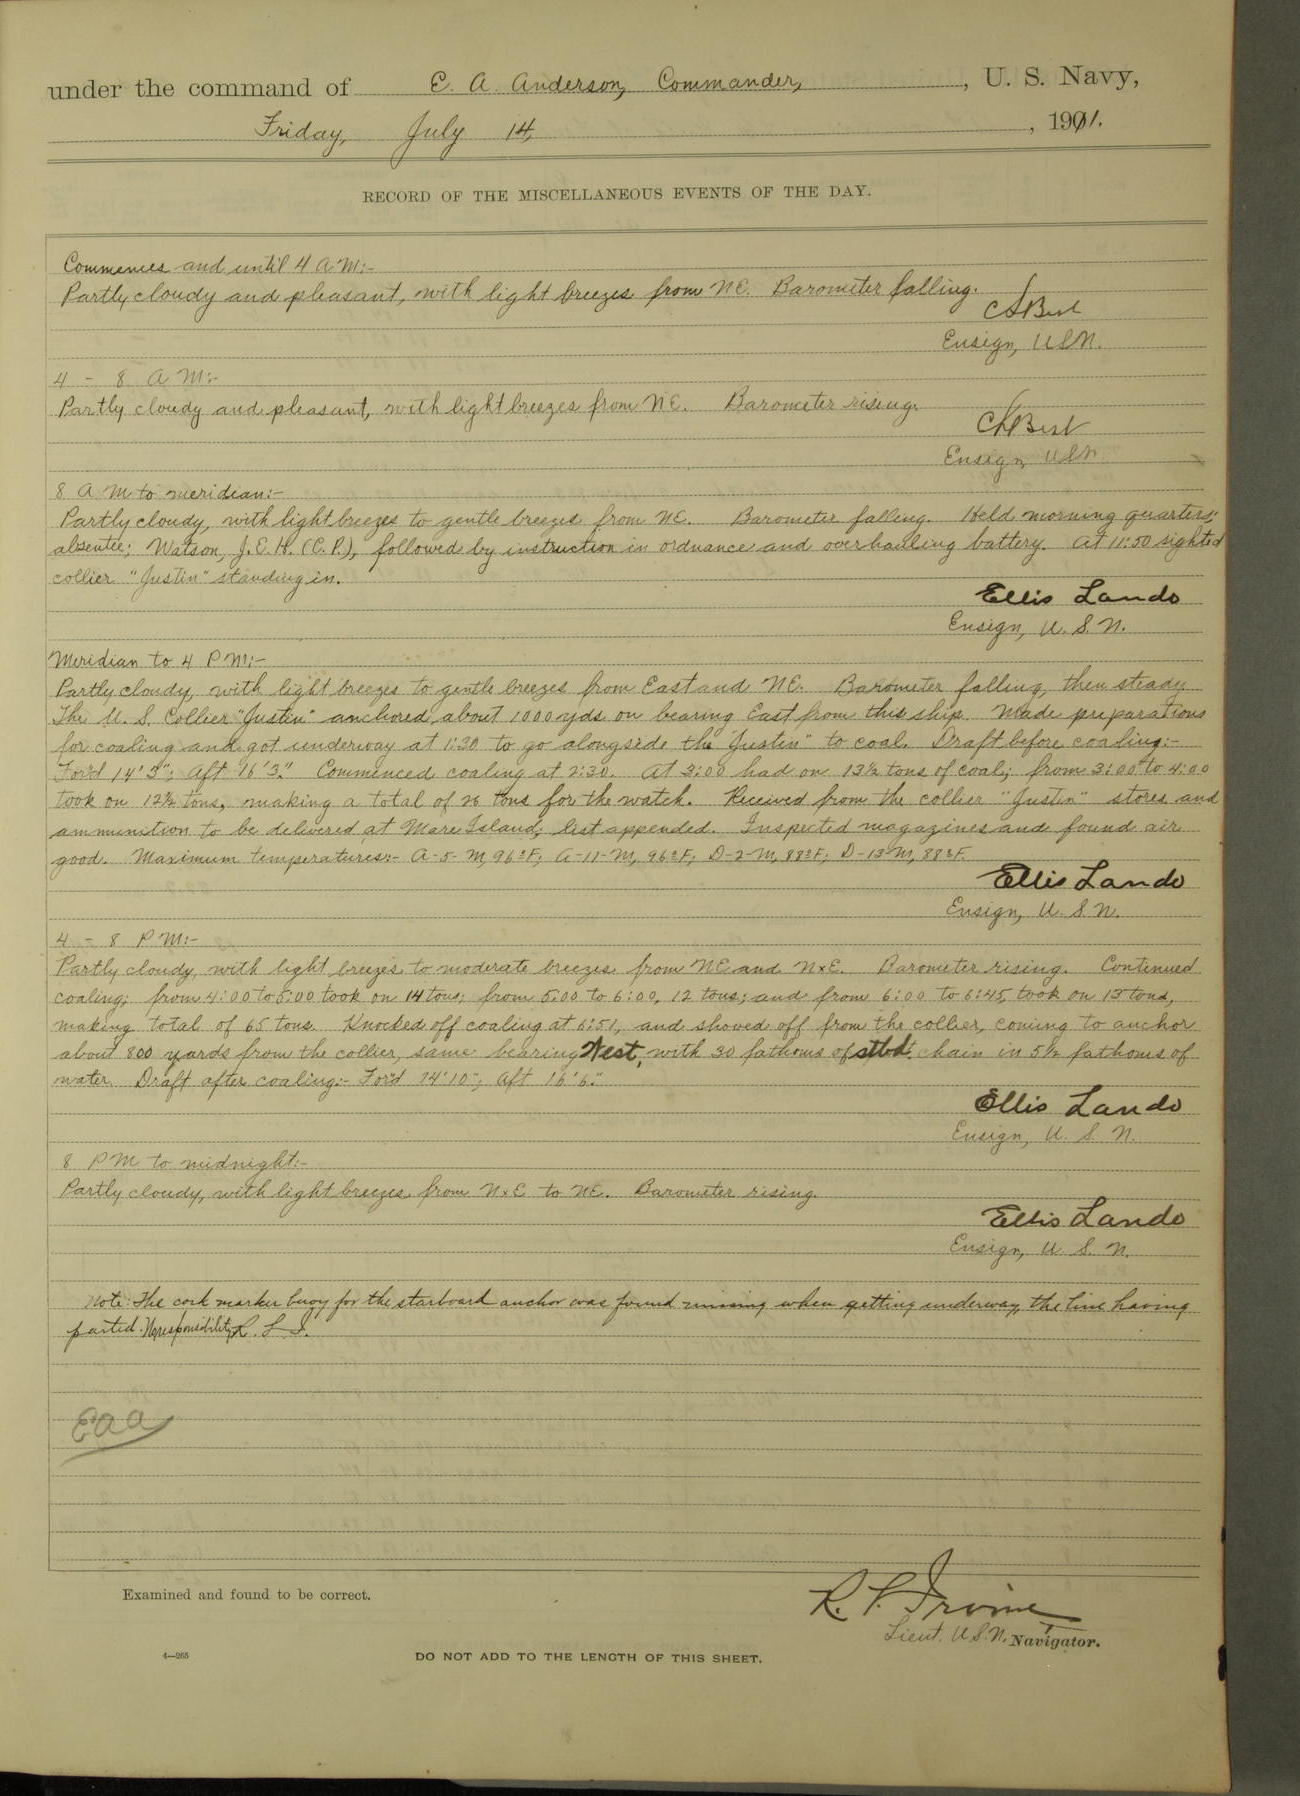 under the command of E. A. Anderson, Commander, , U. S. Navy,
Friday, July 14, , 1911.
RECORD OF THE MISCELLANEOUS EVENTS OF THE DAY.
Commences and until 4 A M:-
Partly cloudy and pleasant, with light breezes from NE. Barometer falling.
Ensign, U S N.
4 - 8 A M:-
Partly cloudy and pleasant, with light breezes from NE. Barometer rising.
Ensign, U S N
8 A M to meridian:-
Partly cloudy, with light breezes to gentle breezes from NE. Barometer falling. Held morning quarters;
absentee; Watson, J. E. H. (C. P.), followed by instruction in ordnance and overhauling battery. At 11:50 sighted
collier "Justin" standing in.
Ellis Lando
Ensign, U. S. N.
Meridian to 4 P M:-
Partly cloudy, with light breezes to gentle breezes from East and NE. Barometer falling, then steady
The U. S. Collier "Justin" anchored about 1000 yds on bearing East from this ship. Made preparations
for coaling and got underway at 1:30 to go alongside the "Justin" to coal. Draft before coaling:-
For'd 14' 3"; Aft 16' 3." Commenced coaling at 2:30. At 3:00 had on 13½ tons of coal; from 3:00 to 4:00
took on 12½ tons, making a total of 26 tons for the watch. Received from the collier "Justin" stores and
ammunition to be delivered at Mare Island, list appended. Inspected magazines and found air
good. Maximum temperatures:- A-5-M, 96°F; A-11-M, 96°F; D-2-M, 88°F; D-13-M, 88°F.
Ellis Lando
Ensign, U. S. N.
4 - 8 P M:-
Partly cloudy, with light breezes to moderate breezes from NE and NxE. Barometer rising. Continued
coaling; from 4:00 to 5:00 took on 14 tons; from 5:00 to 6:00, 12 tons; and from 6:00 to 6:45, took on 13 tons,
making total of 65 tons. Knocked off coaling at 6:51, and shoved off from the collier, coming to anchor
about 800 yards from the collier, same bearing West, with 30 fathoms of stbd. chain in 5½ fathoms of
water. Draft after coaling:- For'd 14' 10"; Aft 16' 6."
Ellis Lando
Ensign, U. S. N.
8 PM to midnight:-
Partly cloudy, with light breezes from NxE to NE. Barometer rising.
Ellis Lando
Ensign, U. S. N.
Note: The cork marker buoy for the starboard anchor was found missing when getting underway, the line having
parted. No responsibility.
EAA
Examined and found to be correct.
R. L. Irvine
Lieut. U.S.N. Navigator.
4—265
DO NOT ADD TO THE LENGTH OF THIS SHEET.